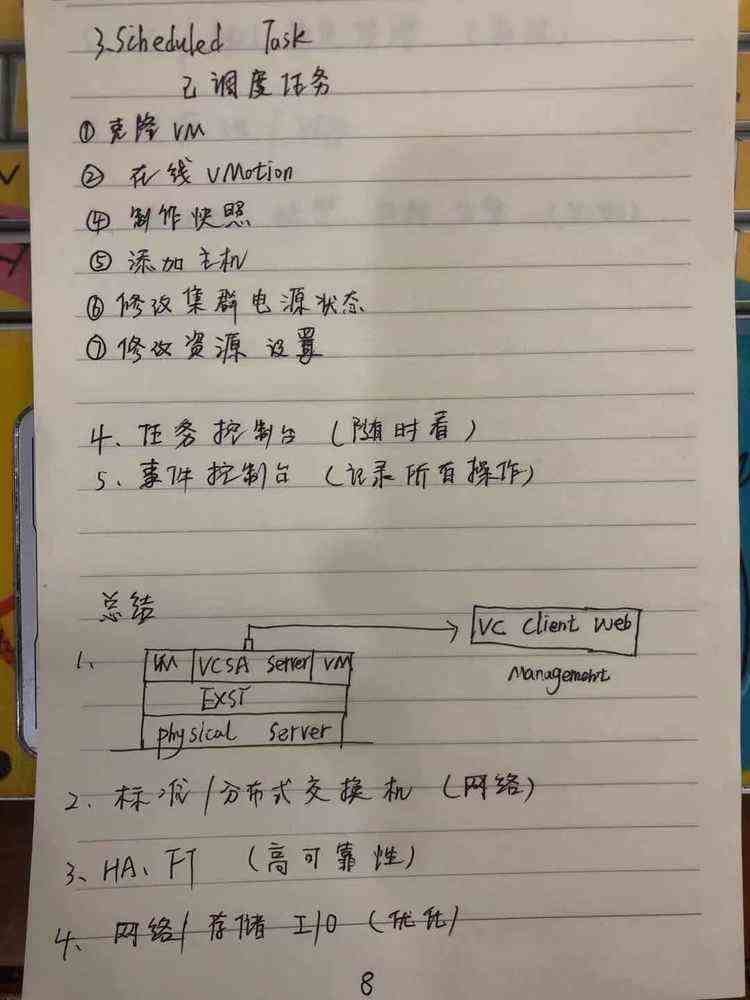 3、Scheduled Task
已调度任务
① 克隆 VM
② 在线 vMotion
④ 制作快照
⑤ 添加主机
⑥ 修改集群电源状态
⑦ 修改资源设置
4、任务控制台（随时看）
5、事件控制台（记录所有操作）
总结
VC Client Web
1、
VM VCSA Server VM
Management
EXSI
physical Server
2、标准/分布式交换机（网络）
3、HA、FT （高可靠性）
4、网络/存储 I/O（优化）
8